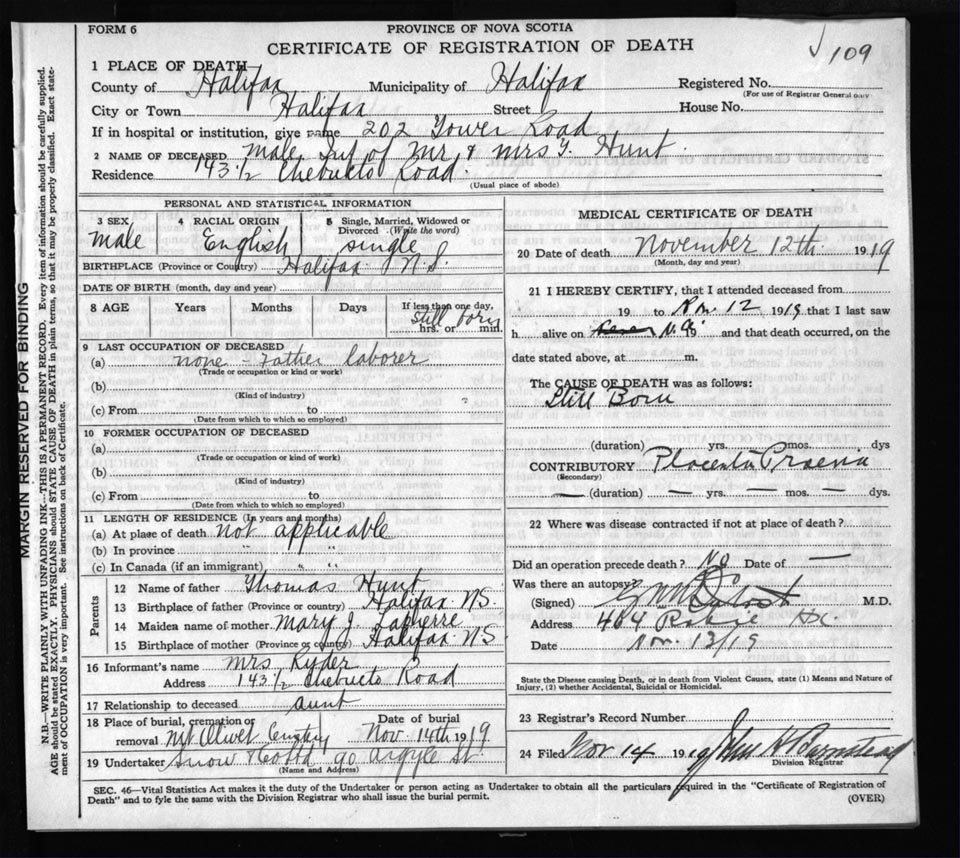 FORM 6
PROVINCE OF NOVA SCOTIA
CERTIFICATE OF REGISTRATION OF DEATH
109
1 PLACE OF DEATH
County of Halifax Municipality of Halifax Registered No.
(For use of Registrar General only)
City or Town Halifax Street House No.
If in hospital or institution, give name 202 Tower Road
2 NAME OF DECEASED Male Inf of Mr & Mrs T. Hunt
Residence 143 1/2 Chebucto Road.
(Usual place of abode)
PERSONAL AND STATISTICAL INFORMATION
3 SEX 4 RACIAL ORIGIN 5 Single, Married, Widowed or Divorced (Write the word)
Male English Single
BIRTHPLACE (Province or Country) Halifax N.S.
DATE OF BIRTH (month, day and year)
8 AGE Years Months Days If less than one day,
Still born
hrs. or min.
9 LAST OCCUPATION OF DECEASED
(a) none - Father laborer
(Trade or occupation or kind or work)
(b)
(Kind of industry)
(c) From to
(Date from which to which so employed)
10 FORMER OCCUPATION OF DECEASED
(a)
(Trade or occupation or kind of work)
(b)
(Kind of industry)
(c) From to
(Date from which to which so employed)
11 LENGTH OF RESIDENCE (In years and months)
(a) At place of death not applicable
(b) In province " "
(c) In Canada (if an immigrant) " "
Parents
12 Name of father Thomas Hunt
13 Birthplace of father (Province or country) Halifax N.S.
14 Maiden name of mother Mary J. Lapierre
15 Birthplace of mother (Province or country) Halifax N.S
16 Informant's name Mrs Ryder
Address 143 1/2 Chebucto Road
17 Relationship to deceased aunt
18 Place of burial, cremation or removal Mt Olivet Date of burial Nov. 14th 1919
19 Undertaker Snow & Co Ltd 90 Argyle St
(Name and Address)
MEDICAL CERTIFICATE OF DEATH
20 Date of death November 12th 1919
(Month, day and year)
21 I HEREBY CERTIFY, that I attended deceased from
19 to Nov. 12 1919 that I last saw
h alive on 19 and that death occurred, on the
date stated above, at m.
The CAUSE OF DEATH was as follows:
Still Born
(duration) yrs. mos. dys
CONTRIBUTORY Placenta Praevia
(Secondary)
— (duration) — yrs. — mos. — dys.
22 Where was disease contracted if not at place of death?
Did an operation precede death? No Date of —
Was there an autopsy No
(Signed) M.D.
Address 464
Date Nov. 13/19
State the Disease causing Death, or in death from Violent Causes, state (1) Means and Nature of
Injury, (2) whether Accidental, Suicidal or Homicidal.
23 Registrar's Record Number
24 Filed Nov 14 1919 John H Barnstead
Division Registrar
SEC. 46—Vital Statistics Act makes it the duty of the Undertaker or person acting as Undertaker to obtain all the particulars required in the "Certificate of Registration of
Death" and to fyle the same with the Division Registrar who shall issue the burial permit.
(OVER)
MARGIN RESERVED FOR BINDING
N.B.—WRITE PLAINLY WITH UNFADING INK—THIS IS A PERMANENT RECORD. Every item of information should be carefully supplied.
AGE should be stated EXACTLY. PHYSICIANS should STATE CAUSE OF DEATH in plain terms, so that it may be properly classified. Exact state-
ment of OCCUPATION is very important. See instructions on back of Certificate.